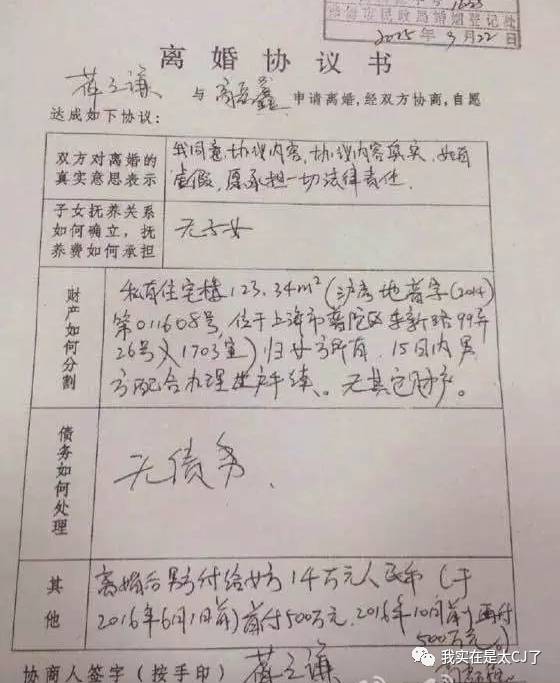 1633
民政局婚姻登记处
2025年9月22日
离婚协议书
薛之谦 与 高磊鑫 申请离婚,经双方协商,自愿
达成如下协议:
双方对离婚的
真实意思表示
我同意协议内容,协议内容真实,如有
虚假,愿承担一切法律责任.
子女抚养关系
如何确立,抚
养费如何承担
无子女
财产如何分割
私有住宅楼123.34m²(沪房地普字(2014)
第011608号,位于上海市普陀区 新路99弄
26号 1703室)归女方所有,15日内男
方配合办理 手续。无其它财产。
债务如何处理
无债务.
其他
离婚后男方付给女方1千万元人民币(于
2016年6月1日前)首付500万元,2016年10月前 再付
500万元
协商人签字(按手印) 薛之谦
我实在是太CJ了